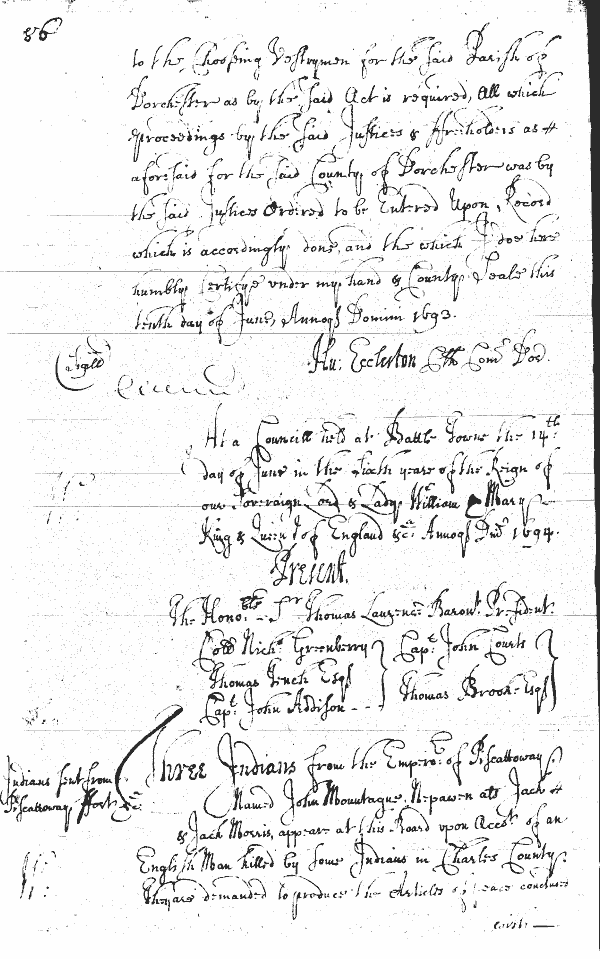 86
to the Choosing Vestrymen for the said Parish of
Dorchester as by the said Act is required, All which
proceedings by the said Justices & ffreeholders as
aforesaid for the said County of Dorchester was by
the said Justices Ordred to be Entered Upon Record
which is accordingly done, and the which I doe here
humbly Certifye under my hand & County Seale this
tenth day of June, Annoqs Domini 1693.
Sigill Hu: Eccleston Clk Com Dor.
At a Councill held at Battle Towne the 14th
day of June in the sixth yeare of the Reign of
our Soveraign Lord & Lady William & Mary
King & Queen of England &ca Annoqs Dni 1694.
Present.
The Honoble Sr Thomas Laurence Baront President.
Coll Nichs Greenberry Capt John Courts
Thomas Tench Esqr Thomas Brooke Esqr
Capt John Addison
Indians sent from
Piscattoway ffort &c
Three Indians from the Emperor of Piscattoway
Named John Mountague, Nepawen als Jack
& Jack Morris, appeare at this Board upon Acct of an
English Man killed by some Indians in Charles County.
They are demanded to produce the Articles of peace concluded